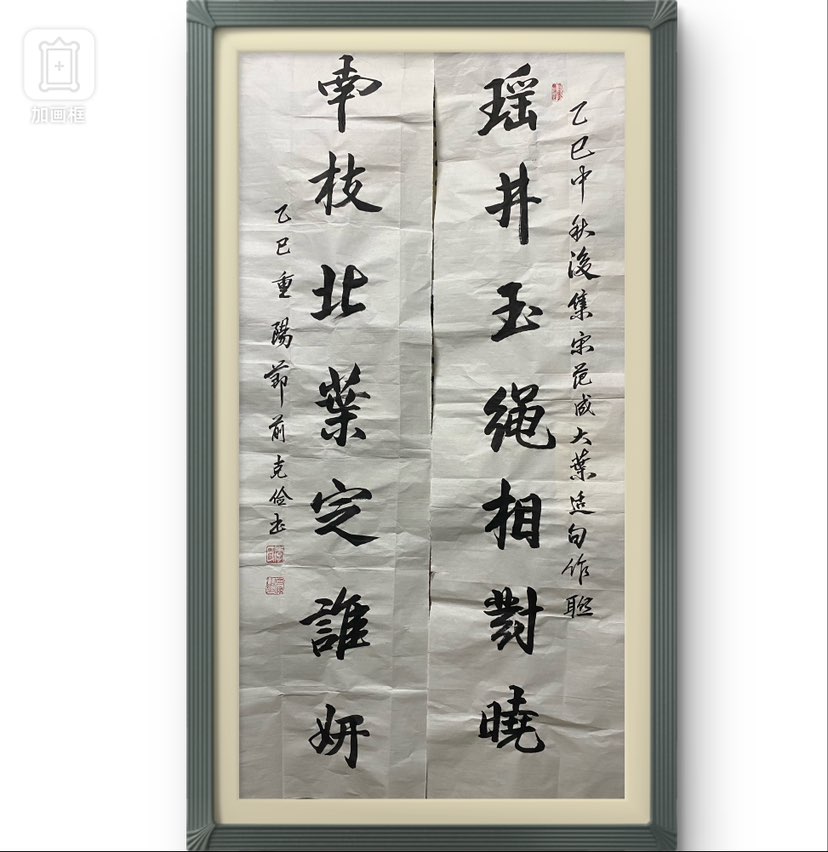 乙巳中秋後集宋范成大葉适句作聯
瑶井玉绳相對曉
南枝北葉定誰妍
乙巳重陽節前克俭书
加画框